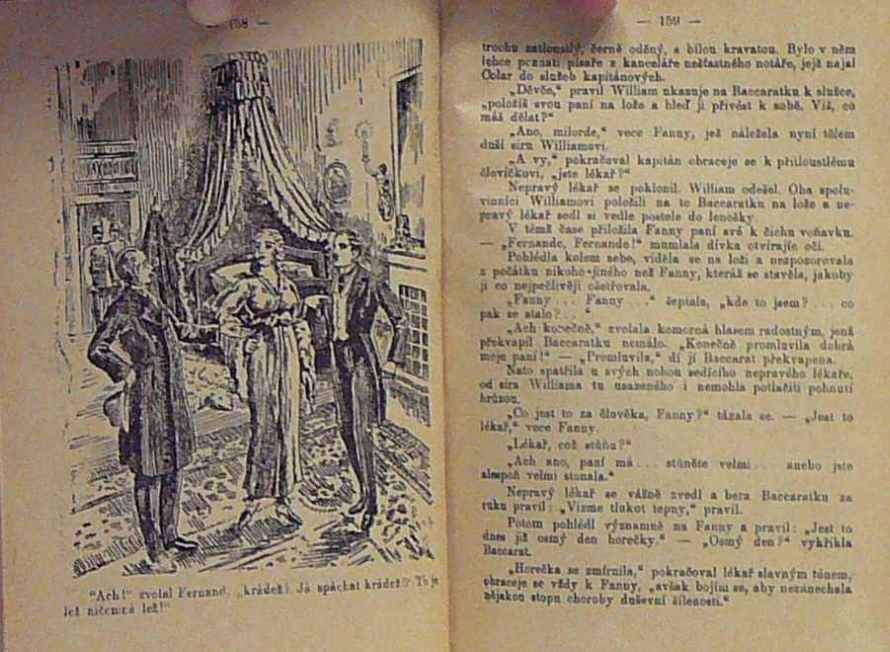 — 158 —
"Ach!" zvolal Fernand, „krádež! Já spáchat krádež? To je
lež ničemná lež!"
— 159 —
trochu zatloustlý, černě oděný, s bílou kravatou. Bylo v něm
lehce poznati písaře z kanceláře nešťastného notáře, jejž najal
Colar do služeb kapitánových.
„Děvče,“ pravil William ukazuje na Baccaratku k služce,
„položíš svou paní na lože a hleď ji přivést k sobě. Víš, co
máš dělat?“
„Ano, milorde,“ vece Fanny, jež náležela nyní tělem
duší siru Williamovi.
„A vy,“ pokračoval kapitán obraceje se k přitloustlému
človíčkovi, „jste lékař?“
Nepravý lékař se poklonil. William odešel. Oba spolu-
vinníci Williamovi položili na to Baccaratku na lože a ne-
pravý lékař sedl si vedle postele do lenošky.
V témž čase přiložila Fanny paní své k čichu voňavku.
— „Fernande, Fernande!“ mumlala dívka otvírajíc oči.
Pohlédla kolem sebe, viděla se na loži a nezpozorovala
z počátku nikoho jiného než Fanny, kteráž se stavěla, jakoby
ji co nejpečlivěji ošetřovala.
„Fanny . . . Fanny . . .“ šeptala, „kde to jsem? . . . co
pak se stalo? . . .“
„Ach konečně,“ zvolala komorná hlasem radostným, jenž
překvapil Baccaratku nemálo. „Konečně promluvila dobrá
moje paní!“ — „Promluvila,“ dí jí Baccarat překvapena.
Nato spatřila u svých nohou sedícího nepravého lékaře,
od sira Williama tu usazeného i nemohla potlačiti pohnutí
hrůzou.
„Co jest to za člověka, Fanny?“ tázala se. — „Jest to
lékař,“ vece Fanny.
„Lékař, což stůňu?“
„Ach ano, paní má . . . stůněte velmi . . . anebo jste
alespoň velmi stonala.“
Nepravý lékař se vážně zvedl a bera Baccaratku za
ruku pravil: „Vizme tlukot tepny,“ pravil.
Potom pohlédl významně na Fanny a pravil: „Jest to
dnes již osmý den horečky.“ — „Osmý den?“ vykřikla
Baccarat.
„Horečka se zmírnila,“ pokračoval lékař slavným tónem,
obraceje se vždy k Fanny, „avšak bojím se, aby nezanechala
nějakou stopu choroby duševní šílenosti.“